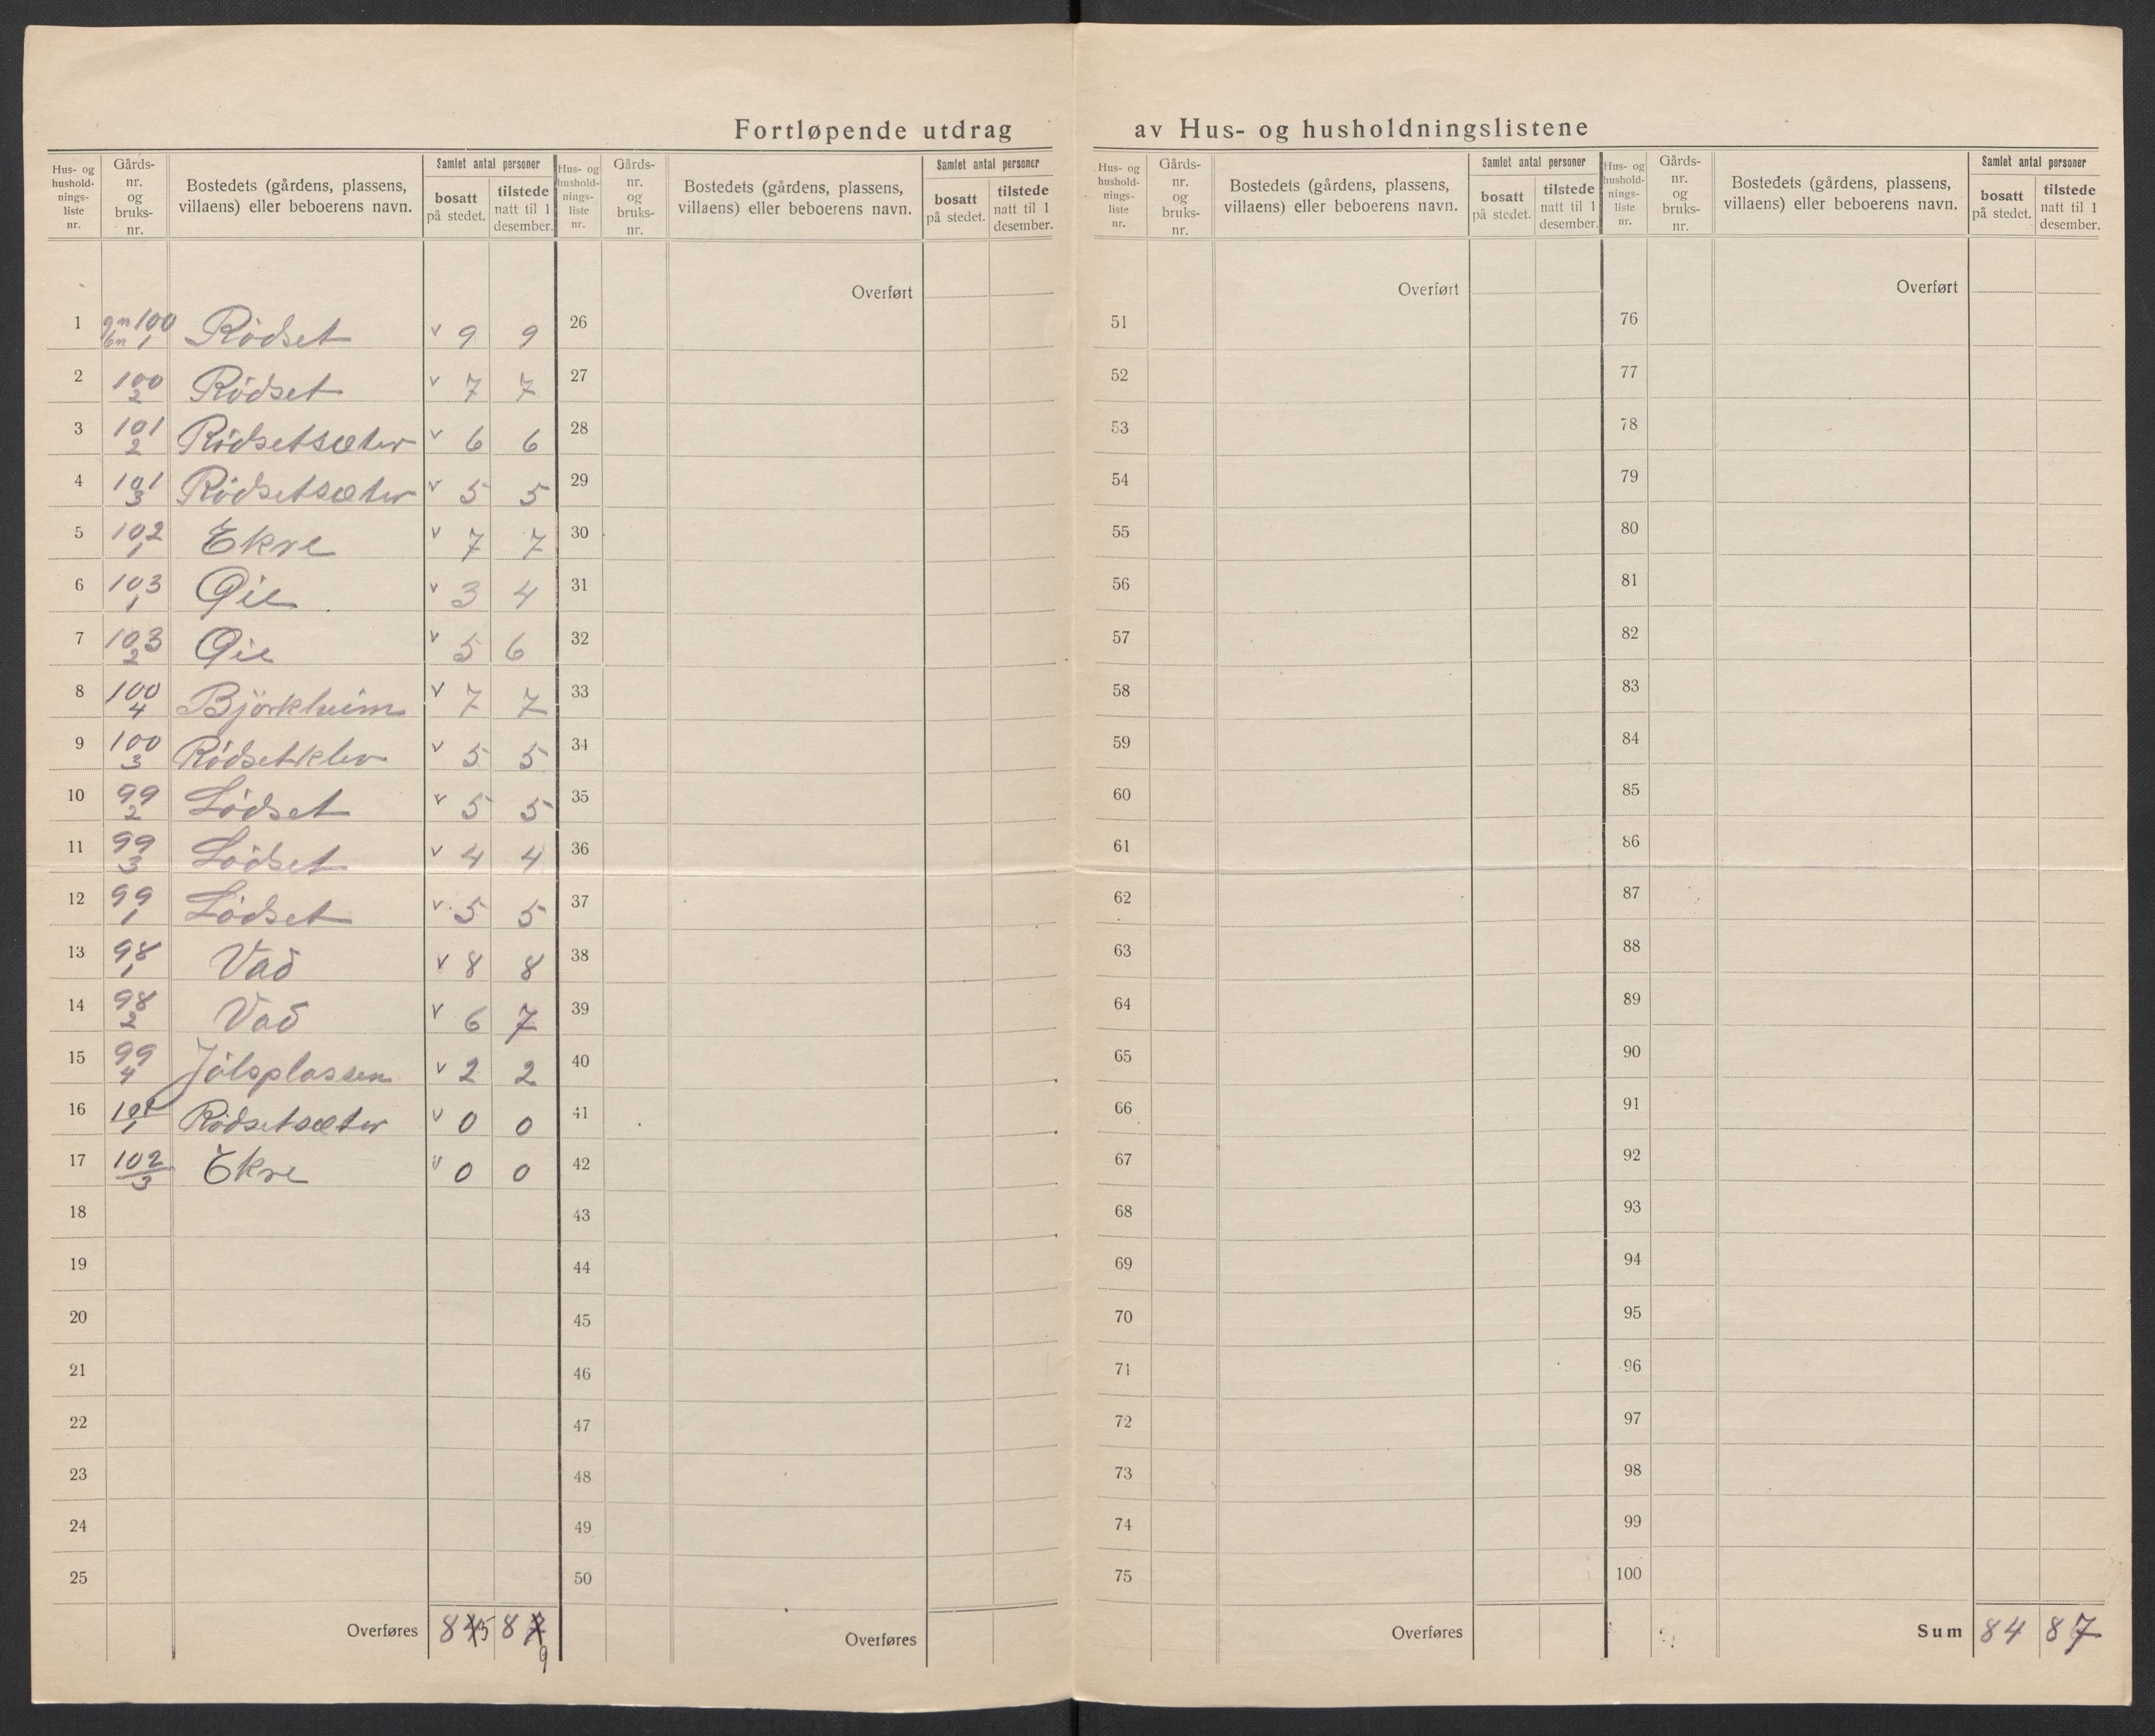 Fortløpende utdrag av Hus- og husholdningslistene
Hus- og hushold- nings- liste nr. | Gårds- nr. og bruks- nr. | Bostedets (gårdens, plassens, villaens) eller beboerens navn. | Samlet antal personer | bosatt på stedet. | tilstede natt til 1 desember.
1 gn 100 bn 1 Rödset v 9 9
2 100 2 Rödset v 7 7
3 101 2 Rödsetsæter v 6 6
4 101 3 Rödsetsæter v 5 5
5 102 1 Ekre v 7 7
6 103 1 Øie v 3 4
7 103 2 Øie v 5 6
8 100 4 Björkheim v 7 7
9 100 3 Rödsetklev v 5 5
10 99 2 Lödset v 5 5
11 99 3 Lödset v 4 4
12 99 1 Lödset v 5 5
13 98 1 Vad v 8 8
14 98 2 Vad v 6 7
15 99 4 Jölsplassen v 2 2
16 101 1 Rödsetsæter v 0 0
17 102 3 Ekre v 0 0
18
19
20
21
22
23
24
25
Overføres 845 87 9
Hus- og hushold- nings- liste nr. | Gårds- nr. og bruks- nr. | Bostedets (gårdens, plassens, villaens) eller beboerens navn. | Samlet antal personer | bosatt på stedet. | tilstede natt til 1 desember.
Overført
26
27
28
29
30
31
32
33
34
35
36
37
38
39
40
41
42
43
44
45
46
47
48
49
50
Overføres
Hus- og hushold- nings- liste nr. | Gårds- nr. og bruks- nr. | Bostedets (gårdens, plassens, villaens) eller beboerens navn. | Samlet antal personer | bosatt på stedet. | tilstede natt til 1 desember.
Overført
51
52
53
54
55
56
57
58
59
60
61
62
63
64
65
66
67
68
69
70
71
72
73
74
75
Overføres
Hus- og hushold- nings- liste nr. | Gårds- nr. og bruks- nr. | Bostedets (gårdens, plassens, villaens) eller beboerens navn. | Samlet antal personer | bosatt på stedet. | tilstede natt til 1 desember.
Overført
76
77
78
79
80
81
82
83
84
85
86
87
88
89
90
91
92
93
94
95
96
97
98
99
100
Sum 84 87